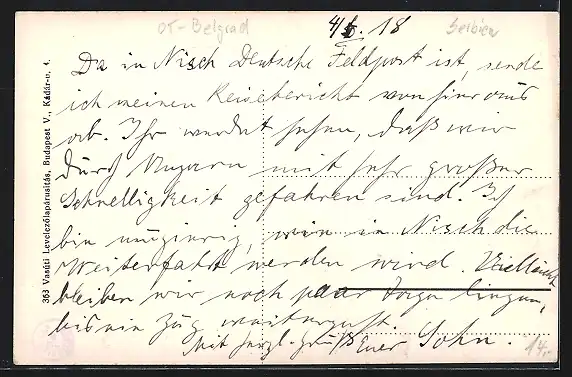 OT-Belgrad
4/6.18
Serbien
Da in Nisch Deutsche Feldpost ist, sende
ich meinen Reisebericht von hier aus
ab. Ihr werdet sehen, daß wir
durch Ungarn mit sehr großer
Schnelligkeit gefahren sind. Ich
bin neugierig, wie in Nisch die
Weiterfahrt werden wird. Vielleicht
bleiben wir noch paar Tage liegen,
bis ein Zug weitergeht.
Mit herzl. Gruß Euer Sohn.
14.-
363 Vasúti Levelezőlapárusitás, Budapest V., Kádár-u. 4.